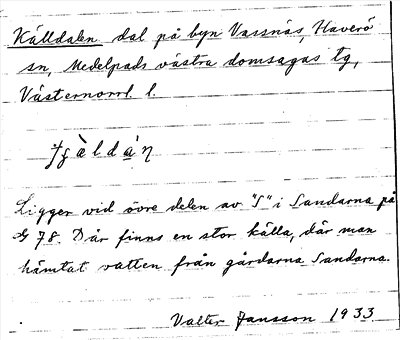 Källdalen dal på byn Vassnäs, Haverö
sn, Medelpads västra domsagas tg,
Västernorrl. l.
Ligger vid övre delen av "S" i Sandarna på
78. Där finns en stor källa, där man
hämtat vatten från gårdarna Sandarna.
Valter Jansson 1933